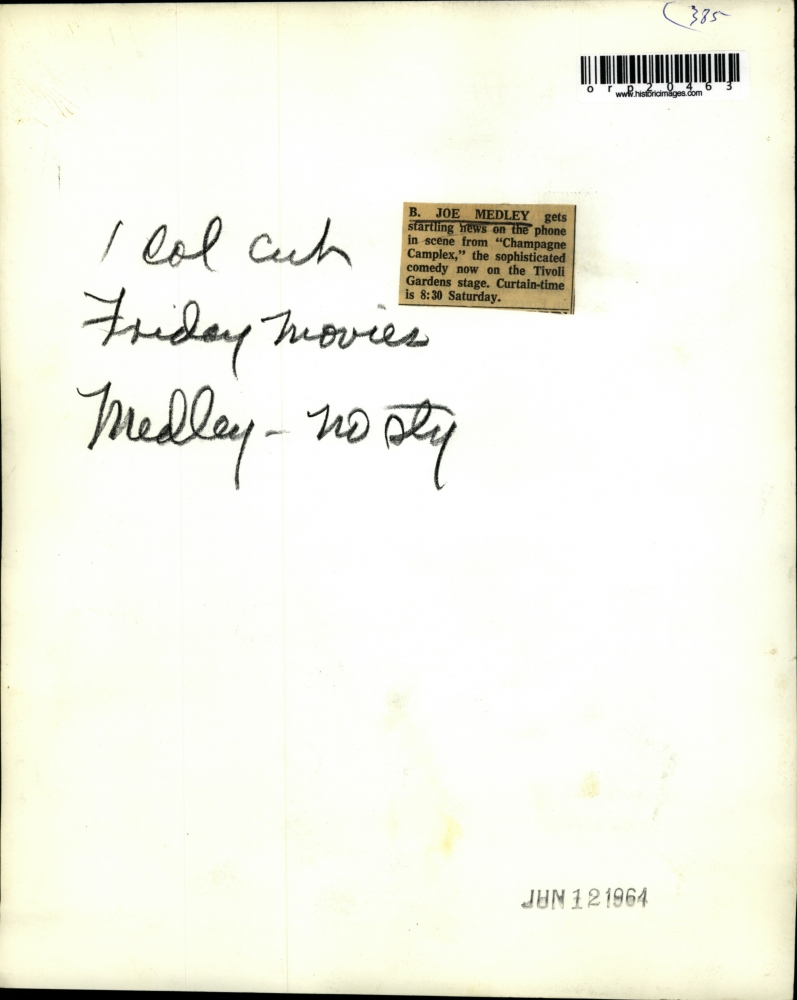 385
orp20463
www.historicimages.com
B. JOE MEDLEY gets
startling news on the phone
in scene from "Champagne
Camplex," the sophisticated
comedy now on the Tivoli
Gardens stage. Curtain-time
is 8:30 Saturday.
1 Col cut
Friday Movies
Medley - no sty
JUN 12 1964